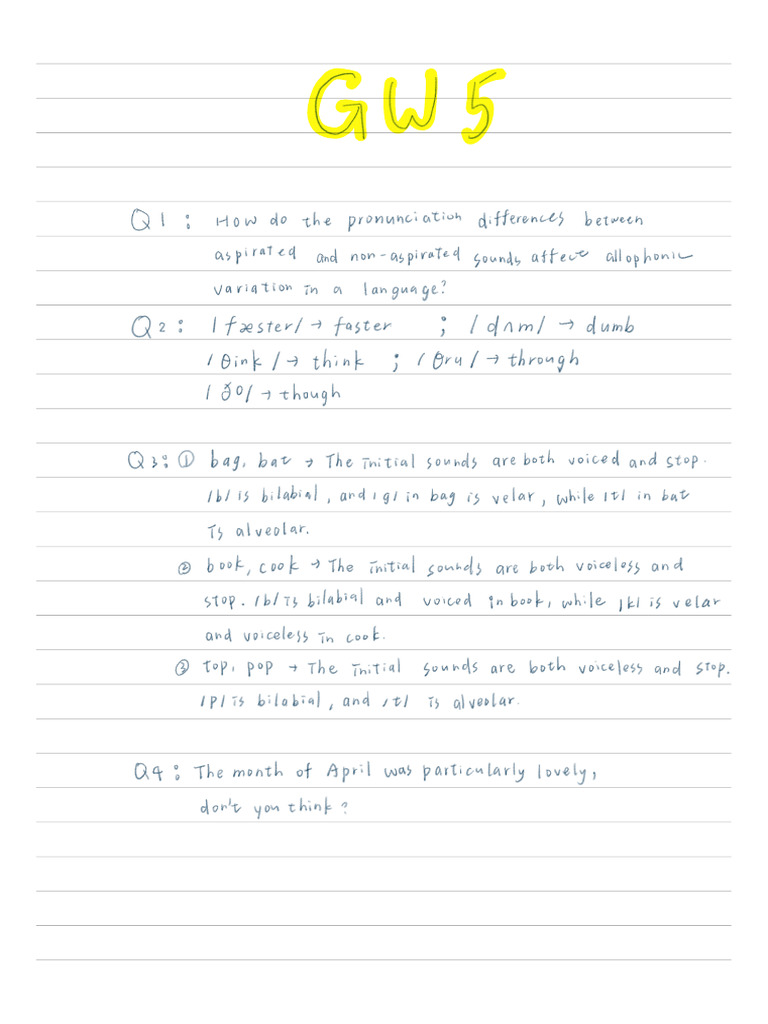 GW5
Q1: How do the pronunciation differences between
aspirated and non-aspirated sounds affect allophonic
variation in a language?
Q2: /fæster/→ faster ; /dʌm/ → dumb
/θink/→ think ; /θru/→ through
/ðo/→though
Q3: ① bag, bat → The initial sounds are both voiced and stop.
/b/ is bilabial, and /g/ in bag is velar, while /t/ in bat
is alveolar.
② book, cook → The initial sounds are both voiceless and
stop. /b/ is bilabial and voiced in book, while /k/ is velar
and voiceless in cook.
③ top, pop → The initial sounds are both voiceless and stop.
/p/ is bilabial, and /t/ is alveolar.
Q4: The month of April was particularly lovely,
don't you think?